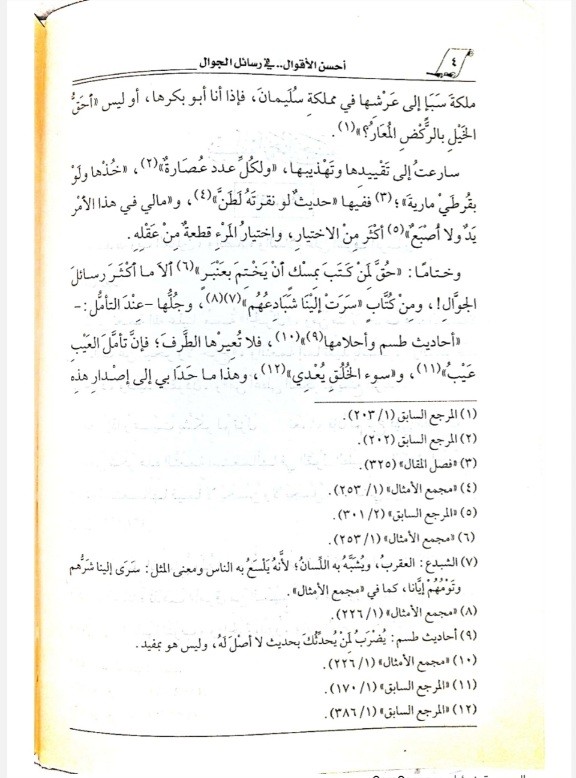 ٤
أحسن الأقوال.. في رسائل الجوال
ملكةَ سَبَإٍ إلى عَرْشِها في مملكةِ سُليمانَ، فإذا أنا أبو بكرها، أو ليس «أَحَقُّ
الخَيْلِ بالرَّكْضِ المُعَارُ؟»(١).
سارعتُ إلى تَقْييدِها وتَهْذيبها، «ولكُلِّ عدد عُصَارةٌ»(٢)، «خُذْها ولَوْ
بقُرطَيْ مارية»؛(٣) ففيها «حديثٌ لو نقرتَهُ لَطَنَّ»(٤)، و«مالي في هذا الأمْرِ
يَدٌ ولا أُصْبَعٌ»(٥) أكْثَر مِنْ الاختيارِ، واختيارُ المَرْءِ قطعةٌ مِنْ عَقْلِهِ.
وختامًا: «حُقَّ لمَنْ كَتَبَ بمِسْكٍ أنْ يَخْتِمَ بعَنْبَرٍ»(٦) ألاَ ما أكْثَرَ رسائلَ
الجوَّالِ!، ومِنْ كُتَّابٍ «سَرَتْ إليْنَا شَبَادِعُهُم»(٧)(٨)، وجُلُّها -عِنْدَ التأمُّل:-
«أحاديث طسم وأحلامها(٩)»(١٠)، فلا تُعِيرها الطَّرفَ؛ فإنَّ تأمُّلَ العَيْبِ
عَيْبٌ»(١١)، و«سوء الخُلُقِ يُعْدِي»(١٢)، وهذا ما حَدَا بي إلى إصْدارِ هذِهِ
(١) المرجع السابق (١/ ٢٠٣).
(٢) المرجع السابق (٢٠٢).
(٣) «فصل المقال» (٣٢٥).
(٤) «مجمع الأمثال» (١/ ٢٥٣).
(٥) «المرجع السابق» (٢/ ٣٠١).
(٦) «مجمع الأمثال» (١/ ٢٥٣).
(٧) الشبدع: العقربُ، ويُشبَّهُ به اللِّسانُ؛ لأنَّهُ يَلْسَعُ به الناس ومعنى المثل: سرَى إلينا شَرُّهم
ولَوْمُهُمْ إيَّانا، كما في «مجمع الأمثال».
(٨) «مجمع الأمثال» (١/ ٢٢٦).
(٩) أحاديث طسم: يُضْرَبُ لمَنْ يُحدِّثُكَ بحديث لا أصْلَ لَهُ، وليس هو بمفيد.
(١٠) «مجمع الأمثال» (١/ ٢٢٦).
(١١) «المرجع السابق» (١/ ١٧٠).
(١٢) «المرجع السابق» (١/ ٣٨٦).